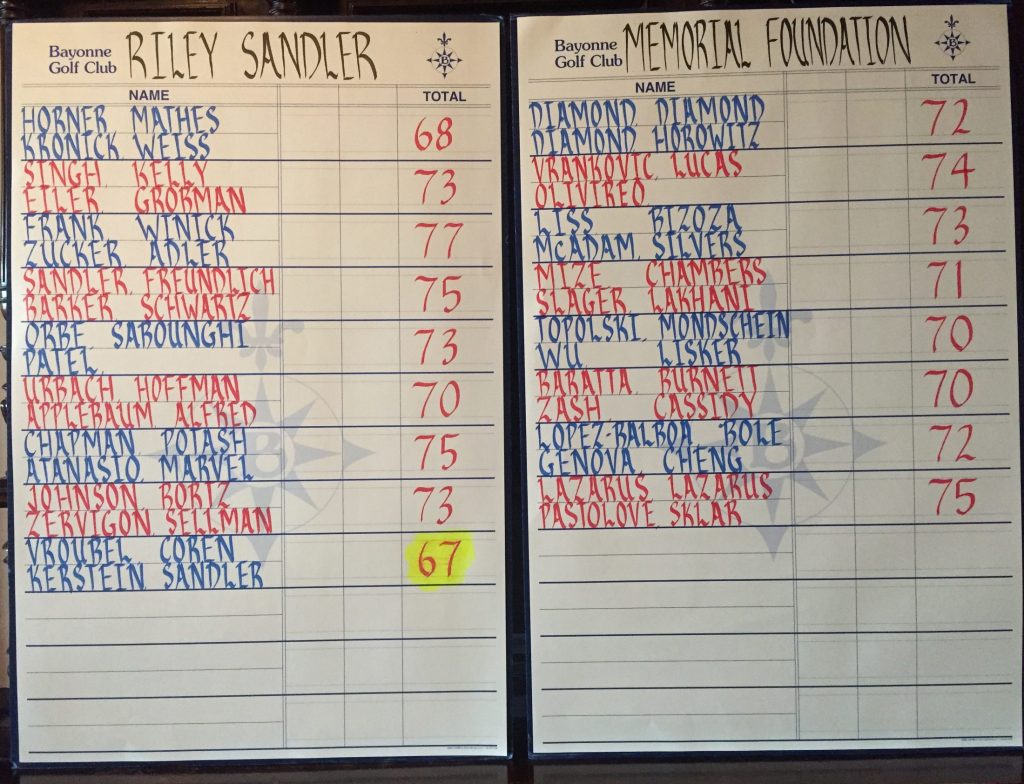 Bayonne
Golf Club
RILEY SANDLER
NAME TOTAL
HORNER MATHES
KRONICK, WEISS
68
SINGH, KELLY
EILER, GROBMAN
73
FRANK WINICK
ZUCKER ADLER
77
SANDLER, FREUNDLICH
BARKER SCHWARTZ
75
ORBE SABOUNGHI
PATEL,
73
URBACH, HOFFMAN
APPLEBAUM, ALFRED
70
CHAPMAN POTASH
ATANASIO, MARVEL
75
JOHNSON BORTZ
ZERVIGON, SELLMAN
73
VROUBEL COREN
KERSTEIN, SANDLER
67
Bayonne
Golf Club
MEMORIAL FOUNDATION
NAME TOTAL
DIAMOND, DIAMOND
DIAMOND, HOROWITZ
72
VRANKOVIC, LUCAS
OLIVIREO
74
LISS BIZOZA
MCADAM, SILVERS
73
MIZE CHAMBERS
SLAGER, LAKHANI
71
TOPOLSKI, MONDSCHEIN
WU LISKER
70
BARATTA, BURNETT
ZASH, CASSIDY
70
LOPEZ-BALBOA, BOLE
GENOVA, CHENG
72
LAZARUS, LAZARUS
PASTOLOVE, SKLAR
75